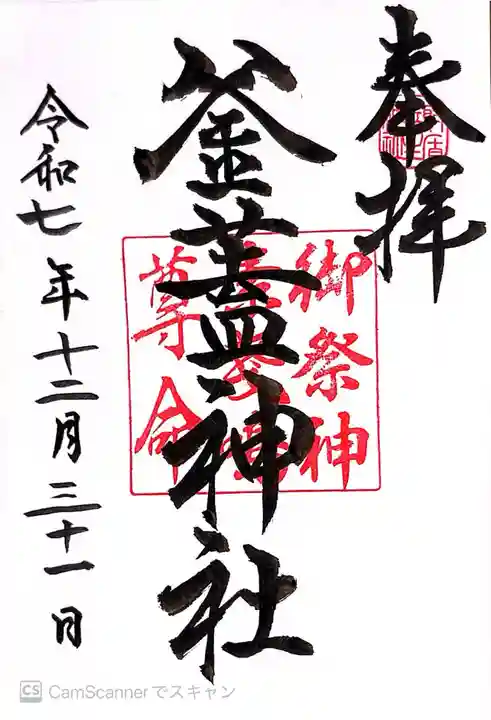 奉拝
御祭神
尊命
釜蓋神社
令和七年十二月三十一日
CS CamScannerでスキャン